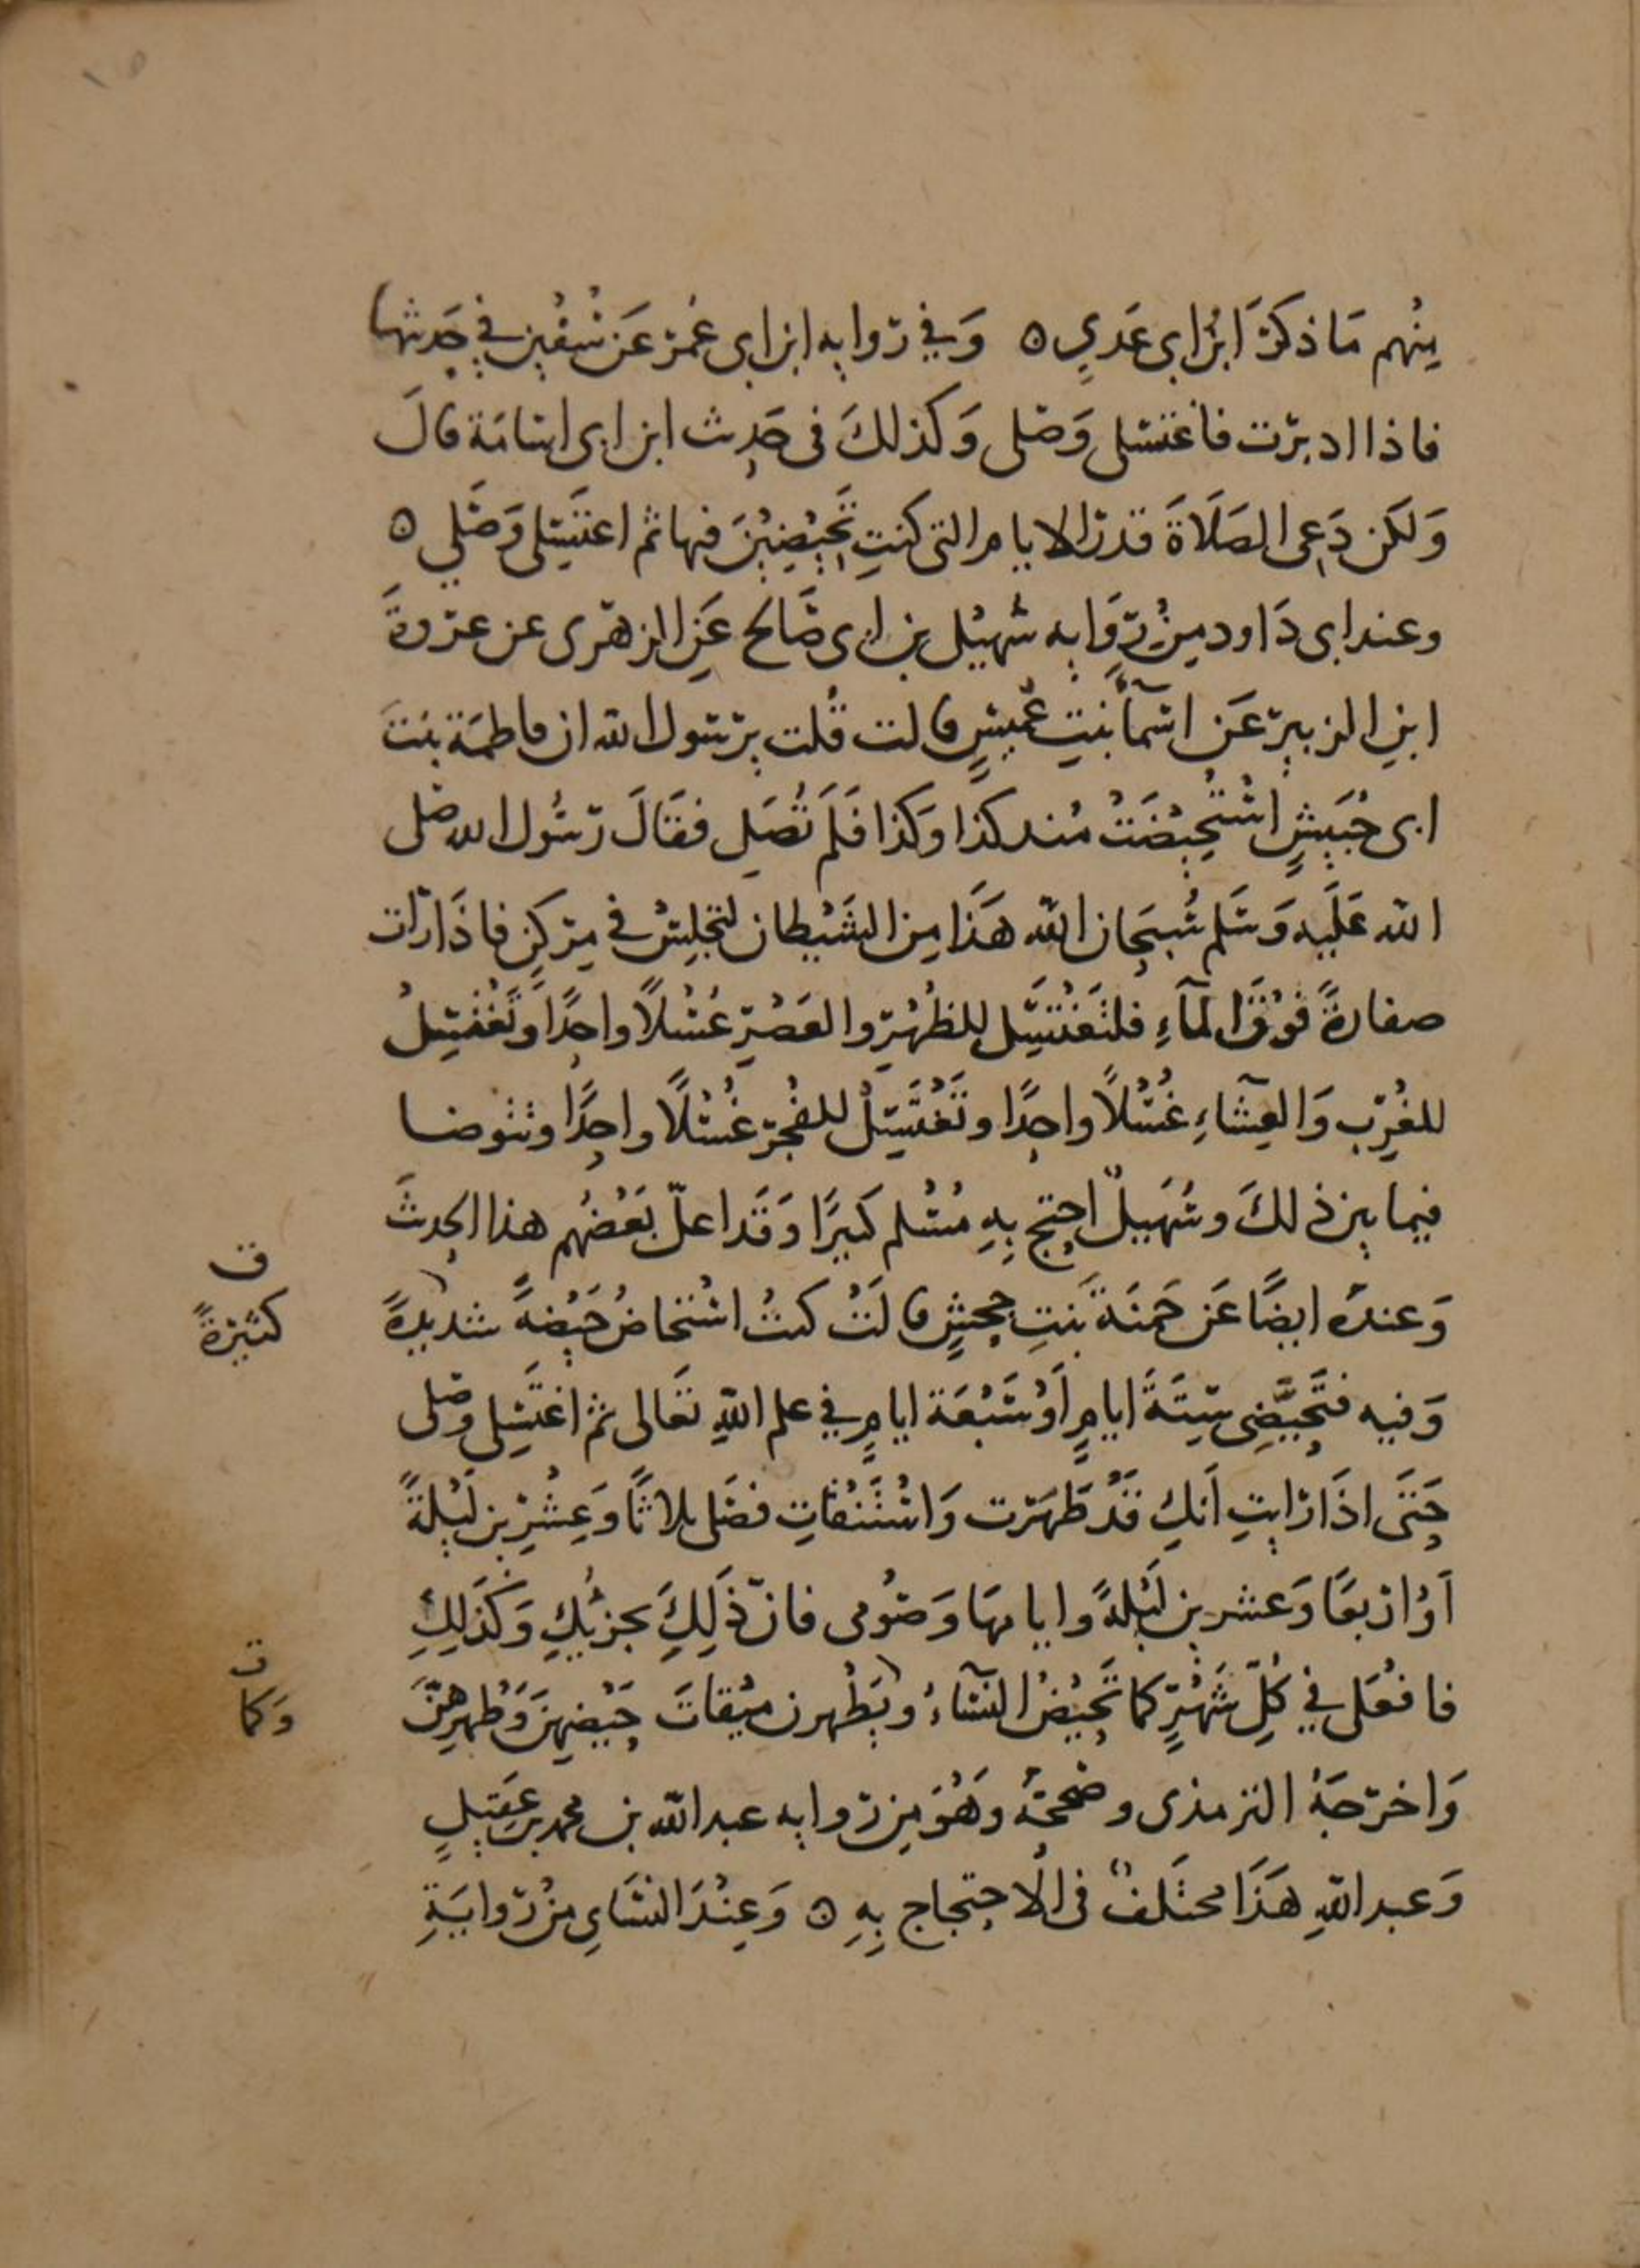 ١٥
مِنْهم مَا ذكرَ ابنُ ابى عَدِيٍ ه وَفي رواية ابن ابى عُمر عَن سُفين في حَدِيثها
فاذا ادبرت فاغتسلى وَصَلى وَكذلكَ فى حَدِيث ابن ابى اسَامَة قالَ
وَلكن دَعِى الصَلَاةَ قدر الايام التى كنتِ تَحِيْضِيْنَ فيها ثم اغتَسِلى وَصَلي ه
وعند ابى دَاود مِنْ رِوَاية سُهيْل بن ابى صَالح عَنِ الزهرى عن عروةَ
ابنِ الزبير عَن اسمآءَ بنتِ عُميسٍ قالت قُلت يرسول الله ان فاطمَة بنتَ
ابى حُبَيشٍ اسْتُحِيْضَتْ منذ كذا وَكذا فَلَم تُصَلِ فقَالَ رسُول الله صَلى
الله عَلَيه وَسَلم سُبحَان الله هَذَا مِن الشَيْطان لتجلِسْ في مِركنٍ فاذَا رَات
صفارةً فَوْقَ المآءِ فلتَغتَسِل للظُهْرِ والعَصْرِ غُسْلًا واحِدًا وتَغْتَسِلُ
للمغرِب وَالعِشآءِ غُسْلًا واحِدًا وتَغْتَسِلُ للفَجْرِ غُسْلًا واحِدًا وتتوضا
فيما بين ذلكَ وسُهَيلٌ احتج بِهِ مُسْلم كثيرًا وَقَد اعلّ بَعْضُهم هذا الحديثَ
وَعندهُ ايضًا عَن حَمنَة بَنتِ جحشٍ قالَتْ كنتُ اسْتحاضُ حَيْضةً شديدةً
ق
كثيرَةً
وَفيه فتَحِيَّضِى سِتةَ ايامٍ أوْ سَبْعَة ايامٍ في علم اللهِ تعَالى ثم اغتَسِلى وصَلى
حَتَى اذَا رَايتِ أنكِ قَدْ طَهَرت وَاسْتَنْقاتِ فصَلى ثلاثًا وَعِشْرِين لَيْلةً
أوْ اربعًا وَعشرين لَيْلةً وايامهَا وَصُومى فانّ ذَلِكَ يجزئكِ وَكذَلِكِ
فافعَلى في كُلِّ شَهْرٍ كما تَحِيْضُ النسَآءُ ويَطْهرن مِيْقاتَ حَيْضِهنَ وَطُهرِهِنَّ
ق
وَكما
وَاخرجَهُ الترمذى وصَححَهُ وَهُوَ مِن رواية عبد الله بن محمد بن عَقيلٍ
وَعبد اللهِ هَذَا مختَلفٌ فى الاحتجاج بِهِ ه وَعِنْدَ النسَاي مِنْ روايَةِ